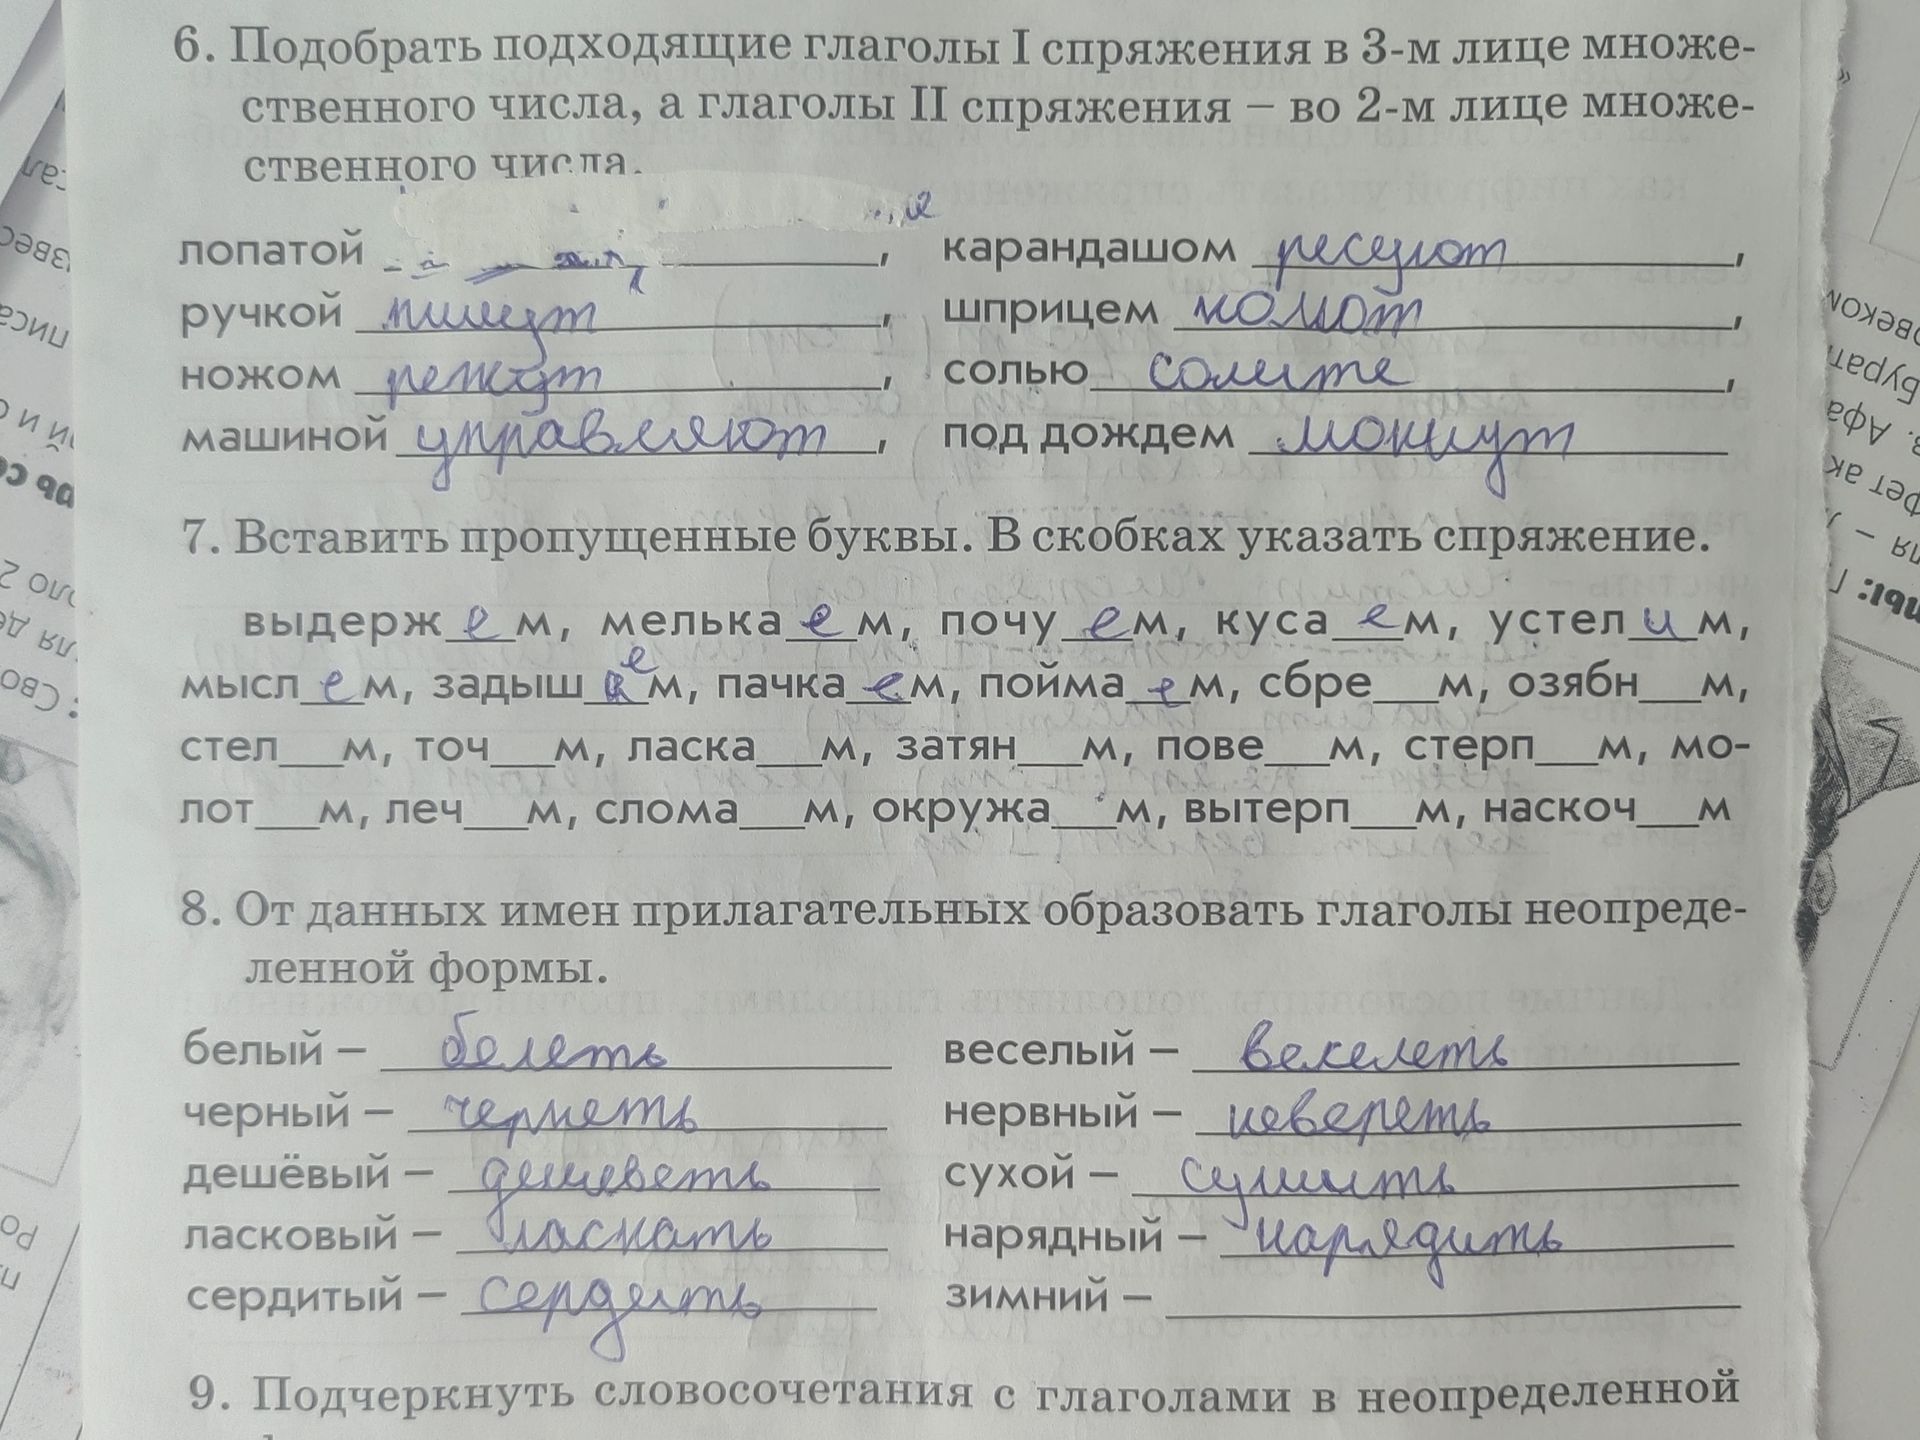 6. Подобрать подходящие глаголы I спряжения в 3-м лице множе-
ственного числа, а глаголы II спряжения – во 2-м лице множе-
ственного числа.
лопатой , карандашом ресуют,
ручкой пишут, шприцем колют,
ножом режут, солью солите,
машиной управляют, под дождем мокнут
7. Вставить пропущенные буквы. В скобках указать спряжение.
выдерж_е_м, мелька_е_м, почу_е_м, куса_е_м, устел_и_м,
мысл_е_м, задыш_е_м, пачка_е_м, пойма_е_м, сбре___м, озябн___м,
стел___м, точ___м, ласка___м, затян___м, пове___м, стерп___м, мо-
лот___м, леч___м, слома___м, окружа___м, вытерп___м, наскоч___м
8. От данных имен прилагательных образовать глаголы неопреде-
ленной формы.
белый – белеть веселый – векелеть
черный – чернеть нервный – невереть
дешёвый – дешеветь сухой – сушить
ласковый – ласкать нарядный – нарядить
сердитый – сердить зимний –
9. Подчеркнуть словосочетания с глаголами в неопределенной